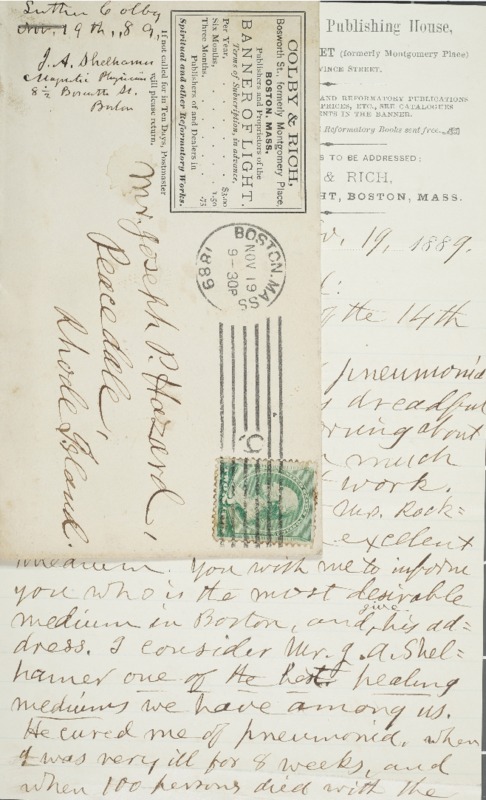 Luther Colby
Nov. 19th, 89,
J. A. Shelhamer
Magnetic Physician
8½ Bosworth St.
Boston
If not called for in Ten Days, Postmaster
will please return.
COLBY & RICH,
Bosworth St. (formerly Montgomery Place,
BOSTON, MASS.
Publishers and Proprietors of the
BANNER OF LIGHT.
Terms of Subscription, in advance.
Per Year, . . . . . $3.00
Six Months, . . . . 1.50
Three Months, . . . .75
Publishers of and Dealers in
Spiritual and other Reformatory Works.
BOSTON, MA
NOV 19
9-30P
1889
Mr. Joseph P. Hazard,
Peacedale,
Rhode Island.
Publishing House,
ET (formerly Montgomery Place)
VINCE STREET.
AND REFORMATORY PUBLICATIONS
PRICES, ETC., SEE CATALOGUES
ENTS IN THE BANNER.
Reformatory Books sent free.
S TO BE ADDRESSED:
& RICH,
HT, BOSTON, MASS.
v. 19, 1889.
the 14th
pneumonia
s dreadful
ring about
much
work.
Mrs. Rock=
excellent
medium. You wish me to inform
you who is the most desirable
medium in Boston, and give his ad=
dress. I consider Mr. J. A. Shel=
hamer one of the best healing
mediums we have among us.
He cured me of pneumonia, when
I was very ill for 8 weeks, and
when 100 persons died with the